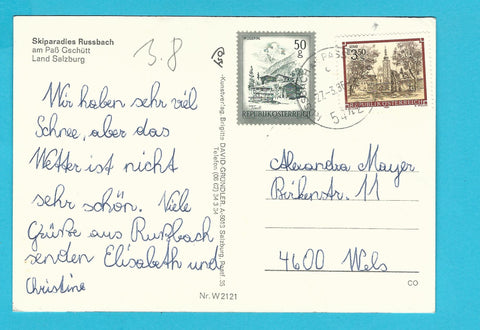 Skiparadies Russbach
am Paß Gschütt
Land Salzburg
3.8
Wir haben sehr viel
Schnee, aber das
Wetter ist nicht
sehr schön. Viele
Grüße aus Rußbach
senden Elisabeth und
Christine
Kunstverlag Brigitte DAVID-GRÜNDLER, A-5015 Salzburg, Postf. 35
Nr. W 2121
50
g
REPUBLIK ÖSTERREICH
3.50
REPUBLIK ÖSTERREICH
5442
Alexandra Mayer
Birkenstr. 11
4600 Wels
CO